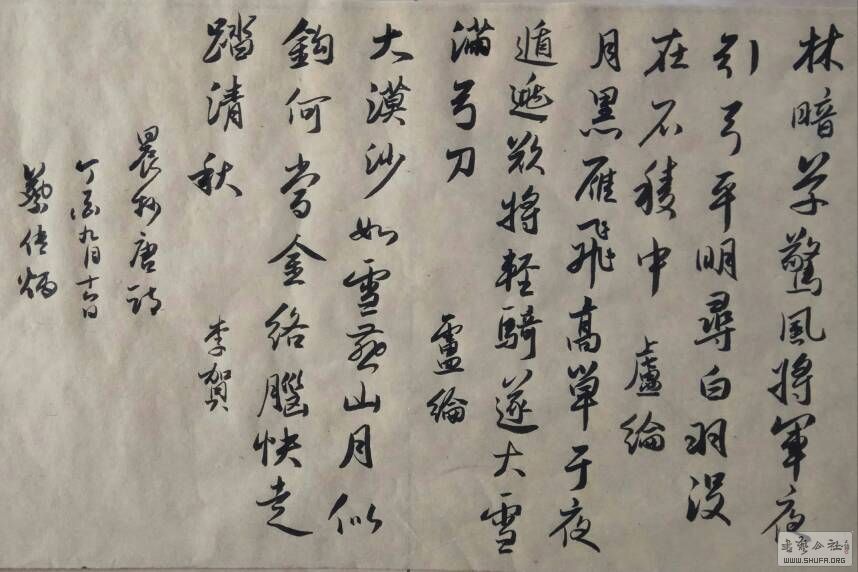 林暗草驚風將軍夜
引弓平明尋白羽沒
在石稜中 盧綸
月黑雁飛高單于夜
遁逃欲將軽騎逐大雪
滿弓刀 盧綸
大漠沙如雪燕山月似
鉤何當金絡腦快走
踏清秋 李賀
晨抄唐詩
丁酉九月十六日
WWW.SHUFA.ORG